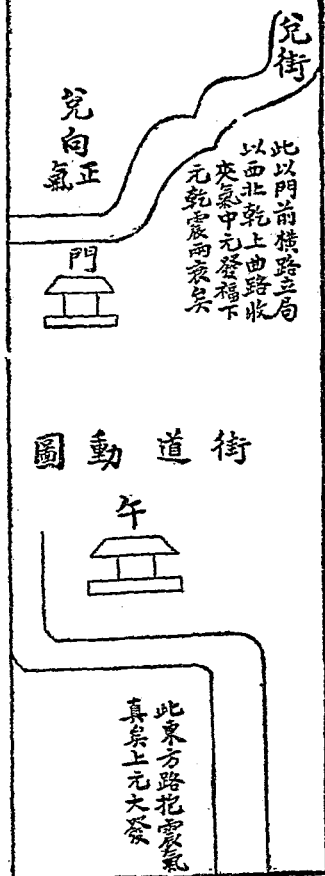 兌街
兌向
正
氣
門
此以門前橫路立局
以西北乾上曲路收
夾氣中元發福下
元乾震兩衰矣
街道動圖
午
此東方路抱震氣
真矣上元大發